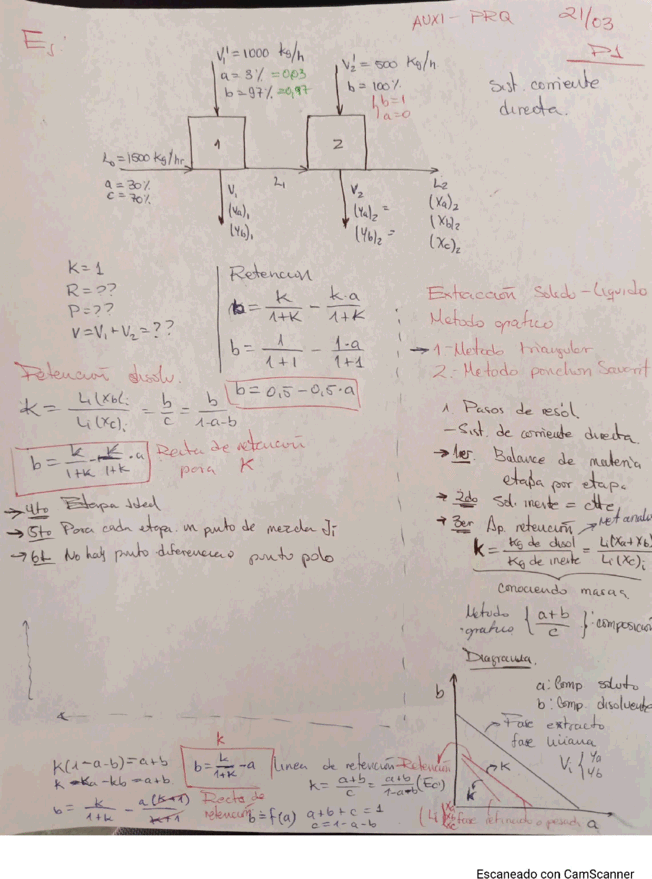 AUXI - PRQ 21/03
P1
Ej:
V₁' = 1000 kg/h
a = 3% = 0,03
b = 97% = 0,97
V₂' = 500 kg/h
b = 100%
b = 1
a = 0
Sist. corriente
directa.
1
2
L₀ = 1500 kg/hr
a = 30%
c = 70%
L₁
L₂
(Xa)₂
(Xb)₂
(Xc)₂
V₁
(Ya)₁
(Yb)₁
V₂
(Ya)₂ =
(Yb)₂ =
K = 1
R = ??
P = ??
V = V₁ + V₂ = ??
Retencion
b = k/(1+K) - k·a/(1+K)
b = 1/(1+1) - 1·a/(1+1)
b = 0,5 - 0,5·a
Extracción Solido - Liquido
Metodo grafico
→ 1- Metodo triangular
2.- Metodo ponchon Savarit
Retención disolv.
K = Li(Xb)i/Li(Xc)i = b/c = b/(1-a-b)
b = k/(1+K) - K/(1+K)·a
Recta de retención
para K
1. Pasos de resol.
- Sist. de corriente directa
→ 1er Balance de materia
etapa por etapa
→ 2do Sol. inerte = ctte
→ 3er Ap. retención
k = Kg de disol/Kg de inerte = Li(Xa+Xb)/Li(Xc)i
conociendo masas
→ 4to Etapa Ideal
→ 5to Para cada etapa un punto de mezcla Ji
→ 6t No hay punto diferencia o punto polo
Metodo
grafico { (a+b)/c } : composición
Diagrama.
b
a: Comp soluto
b: Comp. disolvente
Fase extracto
fase liviana
Vi { Ya
Yb
K
K
a
Fase refinado o pesada
k(1-a-b) = a+b
k - ka - kb = a+b
b = k/(1+k) - a(k+1)/(k+1)
k
b = k/(1+K) - a
Recta de
retención
Linea de retención Retención
k = (a+b)/c = (a+b)/(1-a-b) (Ec)
b = f(a) a+b+c = 1
c = 1-a-b
Escaneado con CamScanner